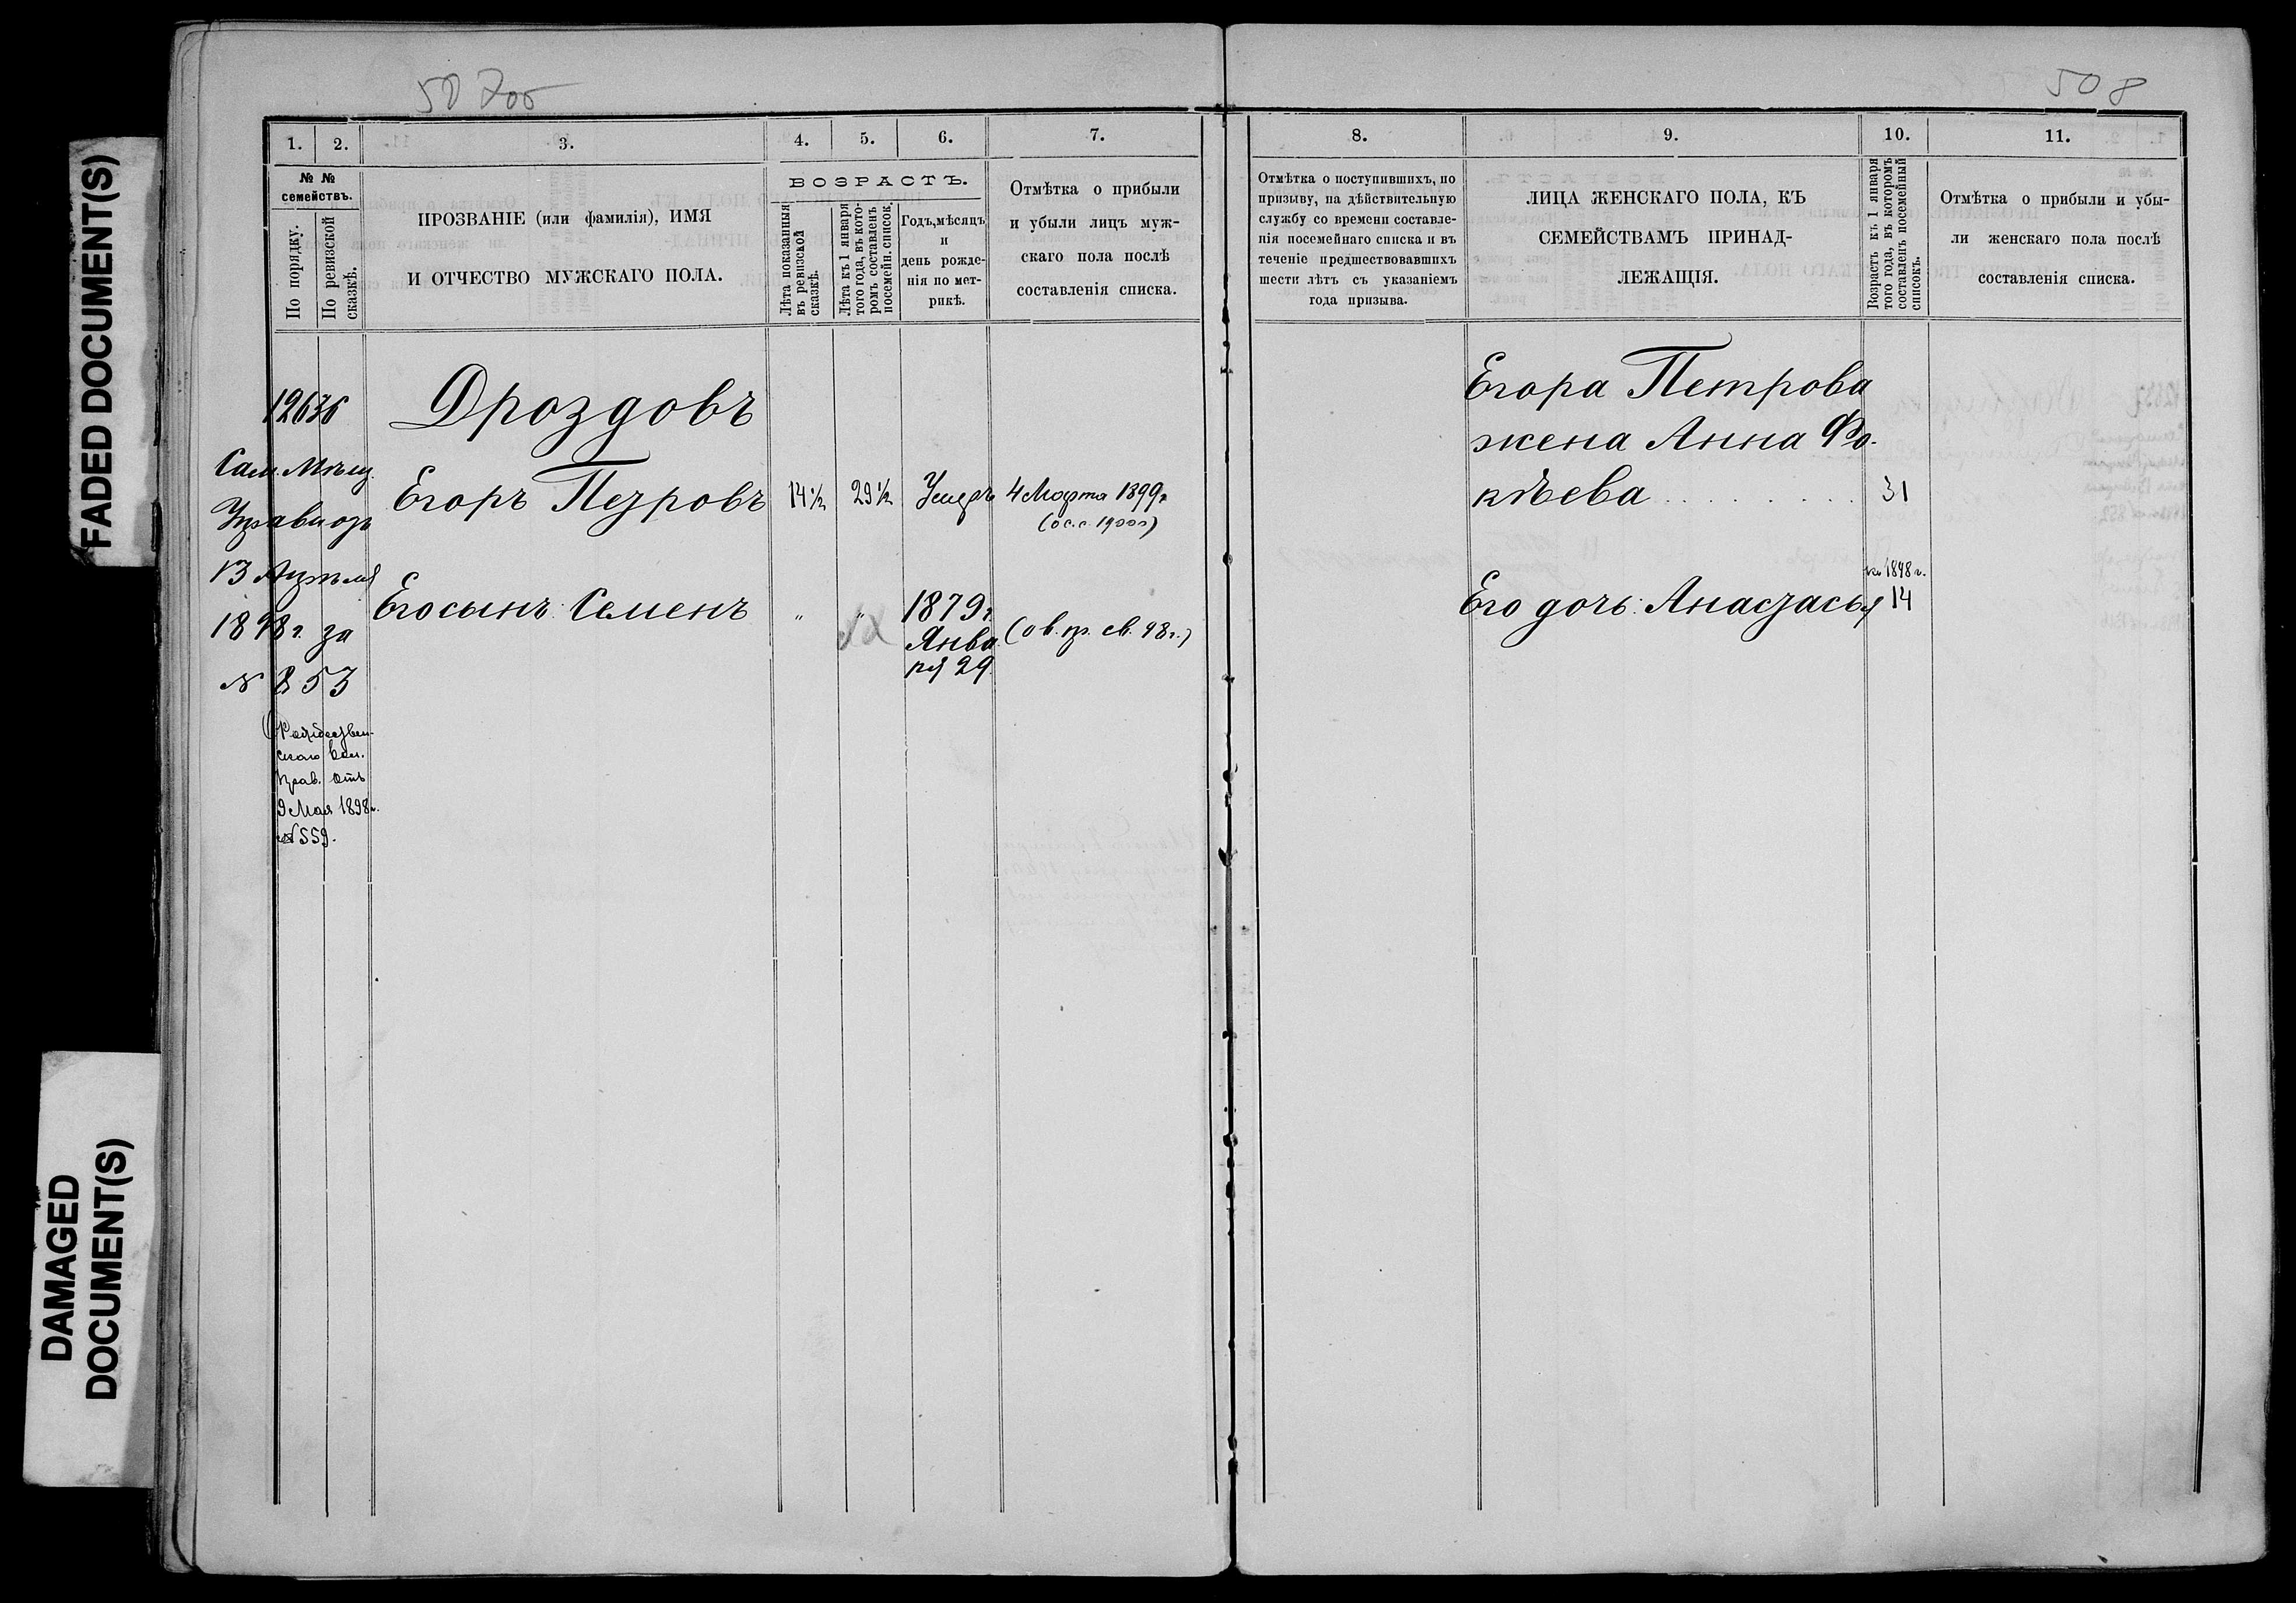 FADED DOCUMENT(S)
DAMAGED
DOCUMENT(S)
508
1. 2. 3. 4. 5. 6. 7.
№ №
семействъ.
По порядку.
По ревизской
сказкѣ.
ПРОЗВАНІЕ (или фамилія), ИМЯ
И ОТЧЕСТВО МУЖСКАГО ПОЛА.
ВОЗРАСТЪ.
Лѣта показанныя
въ ревизской
сказкѣ.
Лѣта къ 1 января
того года, въ кото-
ромъ составленъ
посемейн. список.
Годъ, мѣсяцъ
и
день рожде-
нія по мет-
рикѣ.
Отмѣтка о прибыли
и убыли лицъ муж-
скаго пола послѣ
составленія списка.
12636
Дроздовъ
Сам. Мѣщ.
Управы отъ
13 Апрѣля
1898 г. за
№ 853
Егоръ Петровъ 14½ 29½ Умеръ 4 Марта 1899 г
Его сынъ: Семенъ " " 1879 г.
Янва
ря 29.
Рождествен-
скаго Вол.
Прав. отъ
9 Мая 1898 г.
№ 559.
8. 9. 10. 11.
Отмѣтка о поступившихъ, по
призыву, на дѣйствительную
службу со времени составле-
нія посемейнаго списка и въ
теченіе предшествовавшихъ
шести лѣтъ съ указаніемъ
года призыва.
ЛИЦА ЖЕНСКАГО ПОЛА, КЪ
СЕМЕЙСТВАМЪ ПРИНАД-
ЛЕЖАЩІЯ.
Возрастъ къ 1 января
того года, въ которомъ
составленъ посемейный
списокъ.
Отмѣтка о прибыли и убы-
ли женскаго пола послѣ
составленія списка.
Егора Петрова
жена Анна Фо-
кѣева . . . . . . . . 31
къ 1898 г.
Его дочь: Анастасья 14